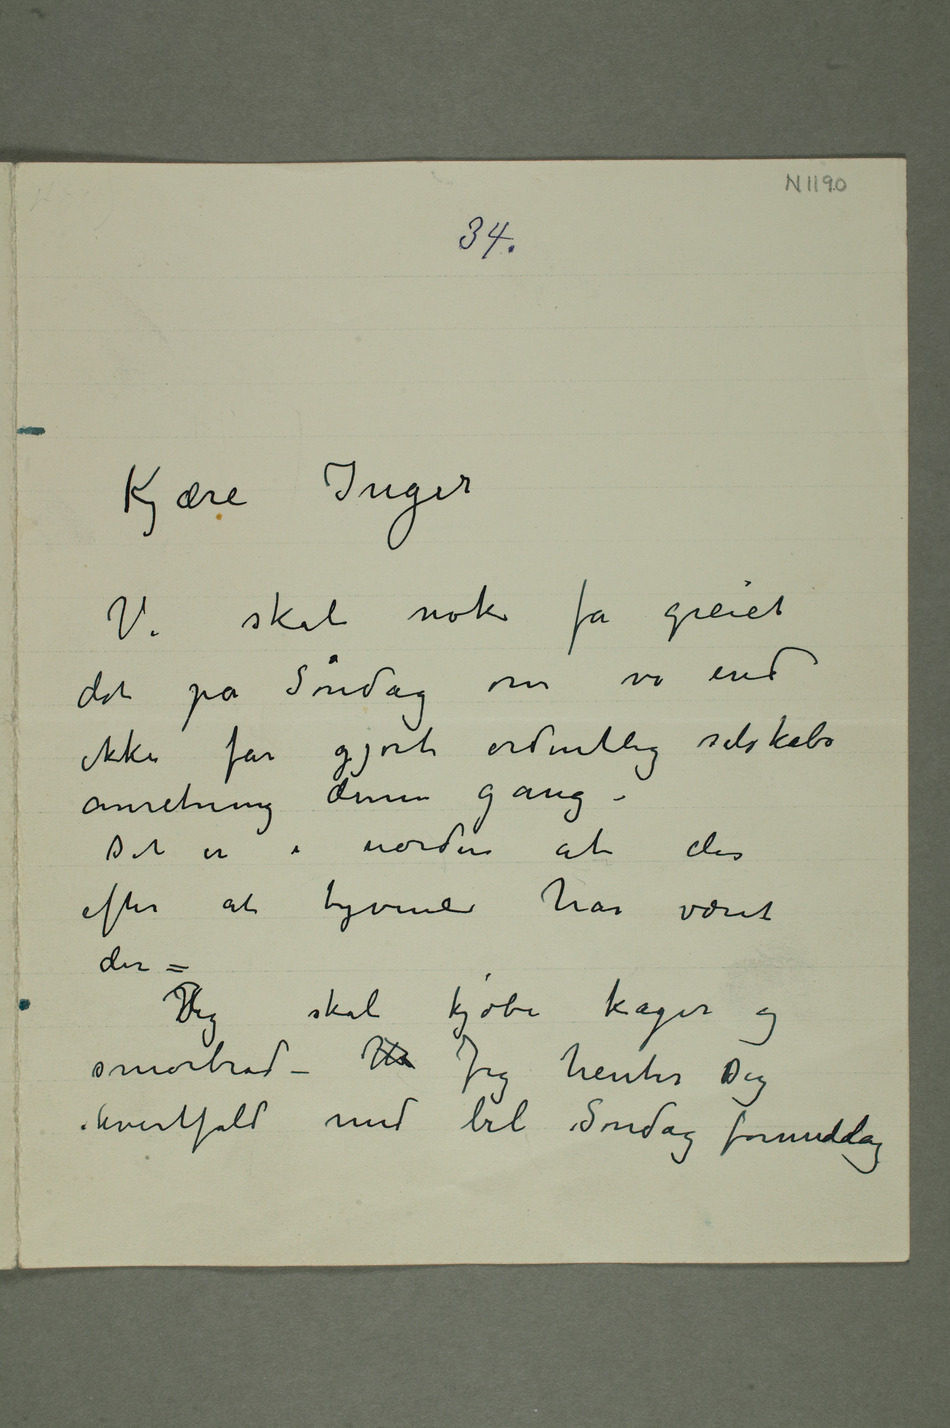 N 1190
34.
Kjære Inger
Vi skal nok få greiet
det på Søndag om vi end
ikke får gjort ordentlig selskabs
anretning denne gang –
Det er i uorden at des
efter at tyvene har været
der =
Jeg skal kjøbe kager og
smørbrød – Jeg henter Dig
ihvertfald med bil Søndag formiddag